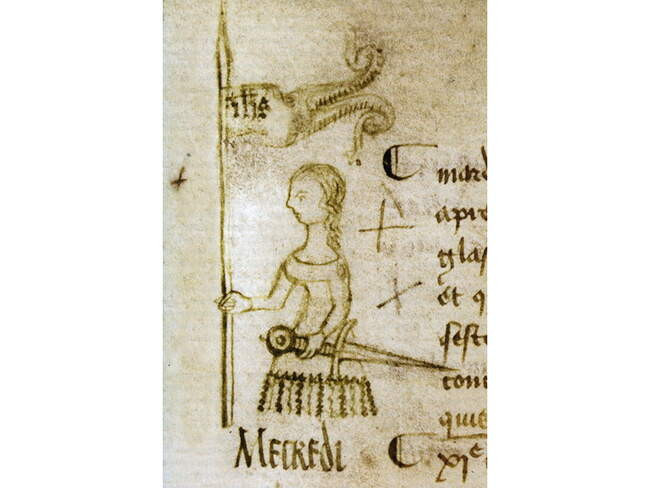 ihs
mard
apre
glas
et q
seste
com
quie
Mecredi
xje